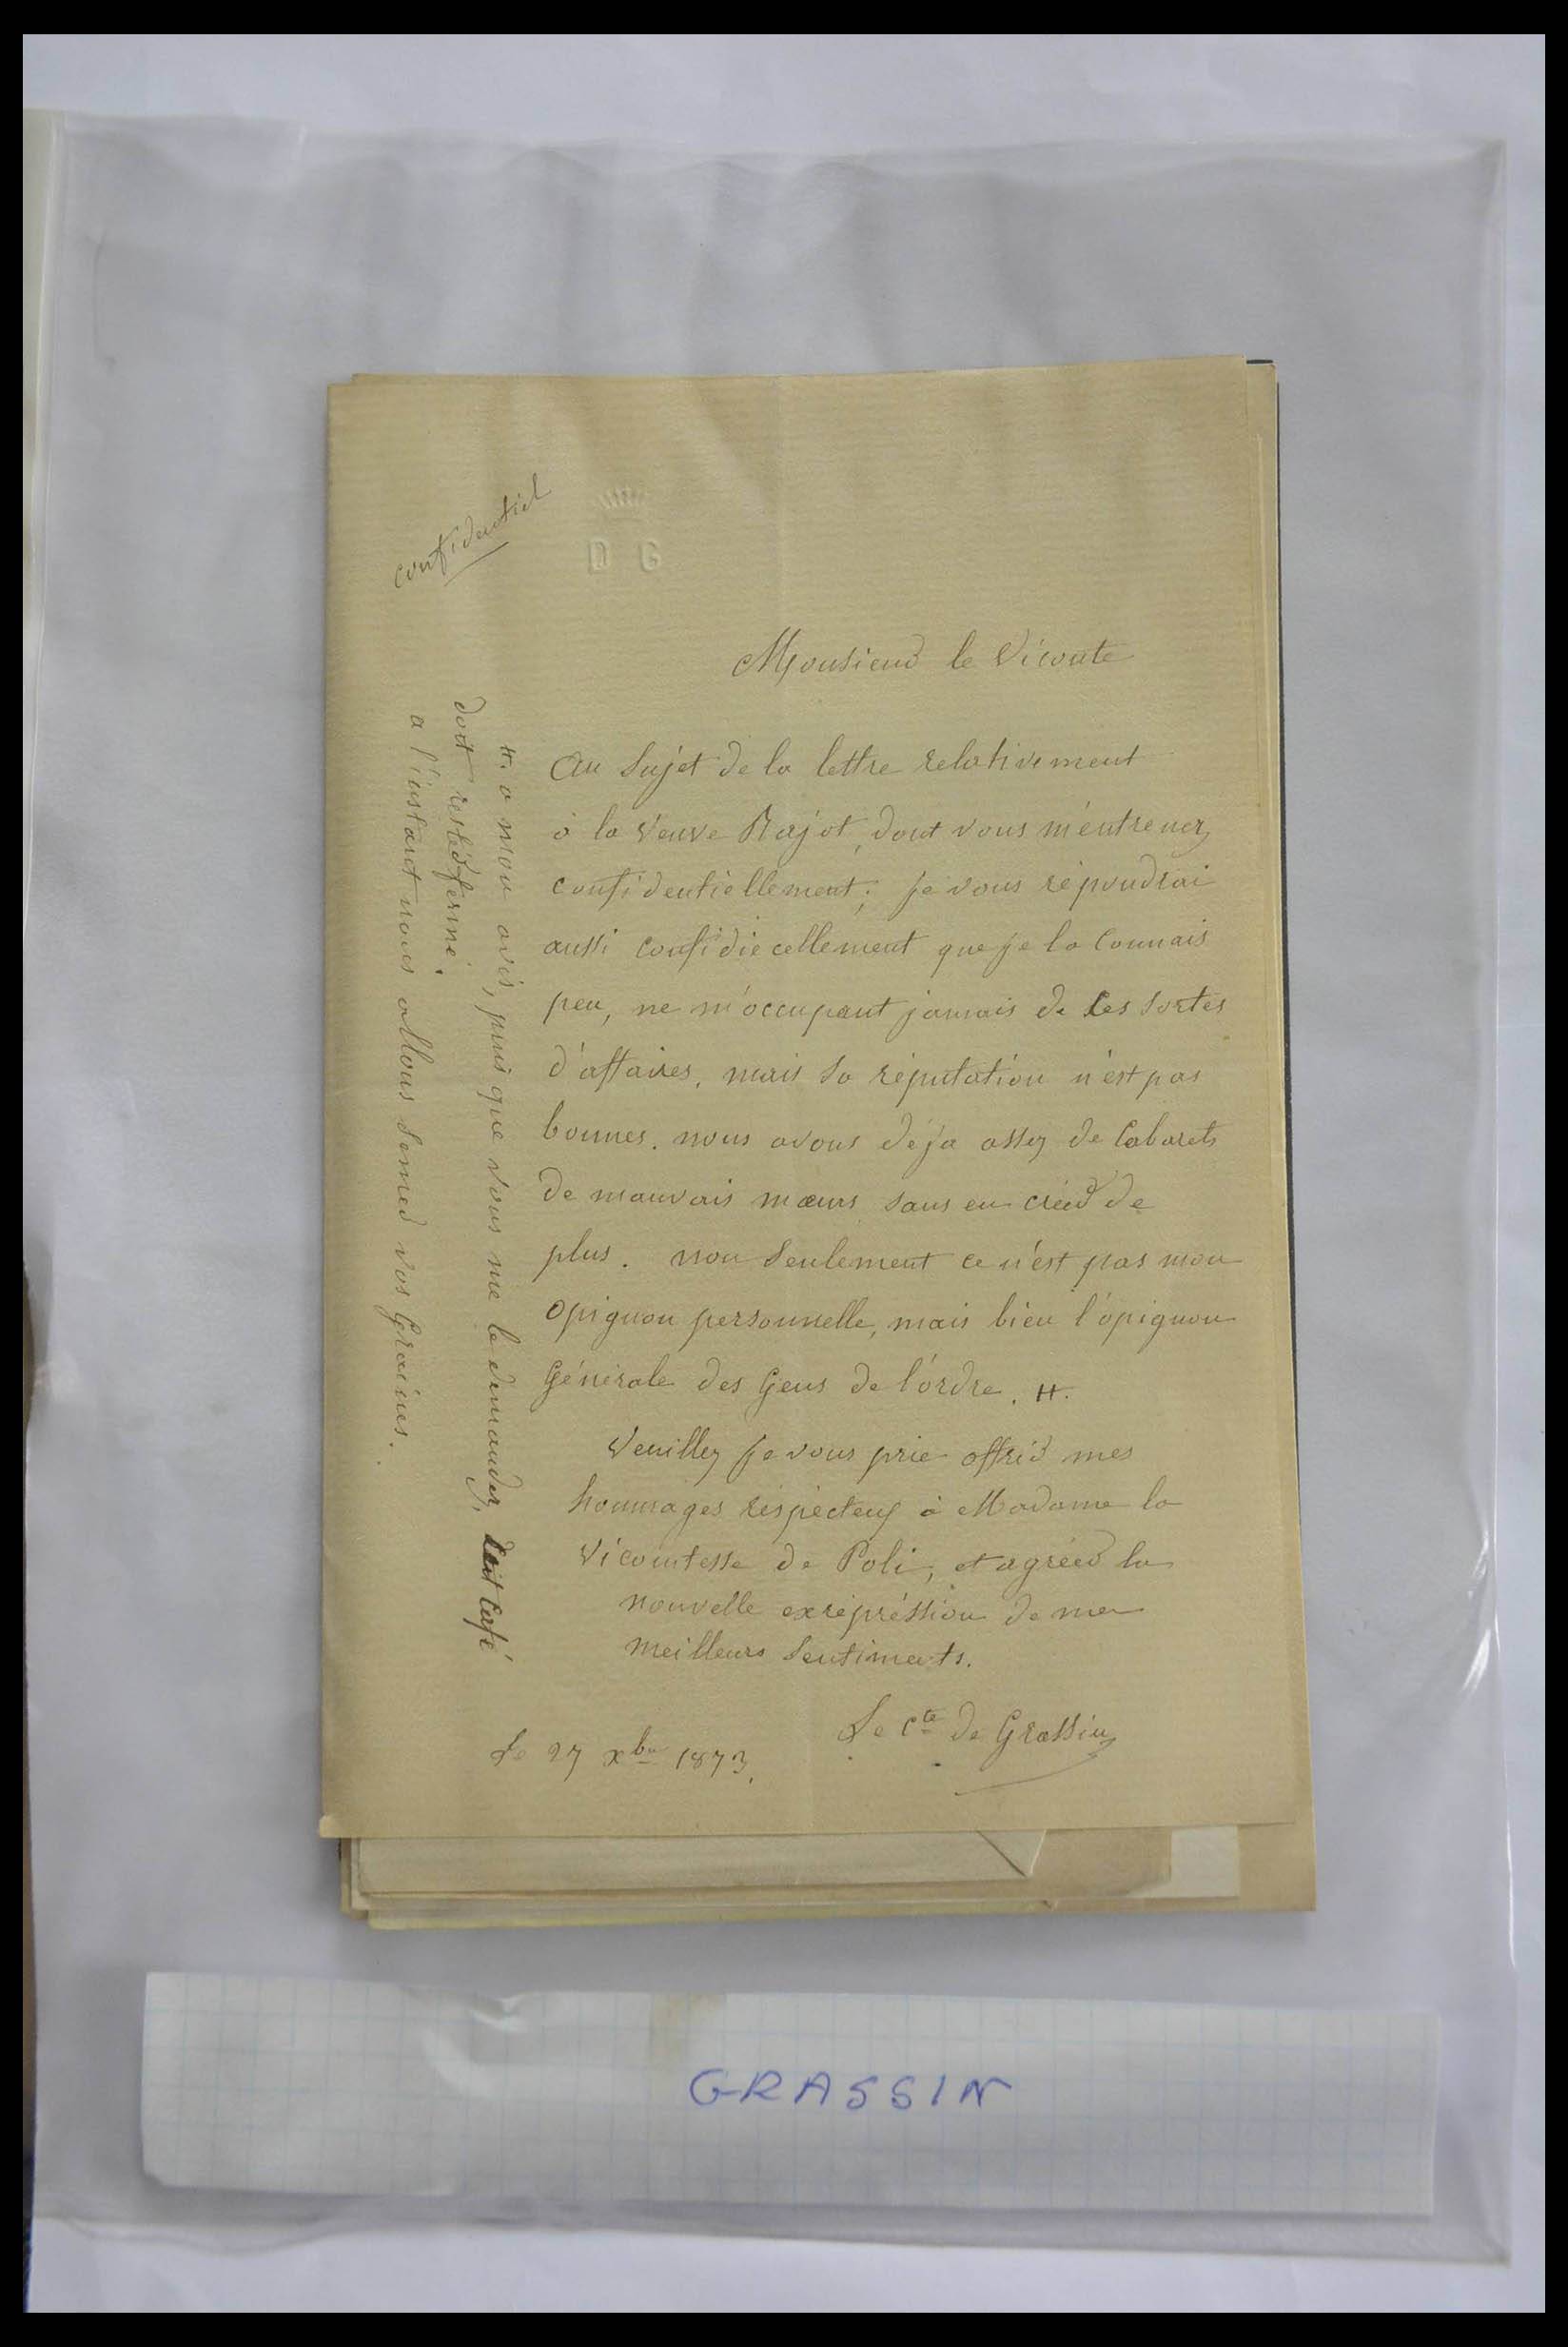 confidentiel
D G
Monsieur le Vicomte
Au sujet de la lettre relativement
à la Veuve Rajot, dont vous m'entrenez
confidentiellement; je vous répondrai
aussi confidiecellement que je la connais
peu, ne m'occupant jamais de ces sortes
d'affaires, mais sa réputation n'est pas
bonnes. nous avons déja assez de Cabarets
de mauvais mœurs sans en créer de
plus. non seulement ce n'est pas mon
opignon personnelle, mais bien l'opignon
Générale des Gens de l'ordre. #.
Veuillez je vous prie offrir mes
hommages réspécteux à Madame la
Vicomtesse de Poli, et agréer la
nouvelle exrépréssion de mes
meilleurs sentiments.
Le Cte de Grassin
Le 27 Xbre 1873.
#. a mon avis, puis que vous me le demandez, café
doit rester fermé.
a l'instant nous allons semer vos Graines.
GRASSIN